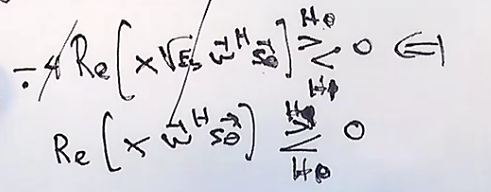 ÷ 4 Re[x√Es w⃗^H s⃗0] ≷ 0 ⇐
Re[x w⃗^H s⃗0] ≷ 0
H0